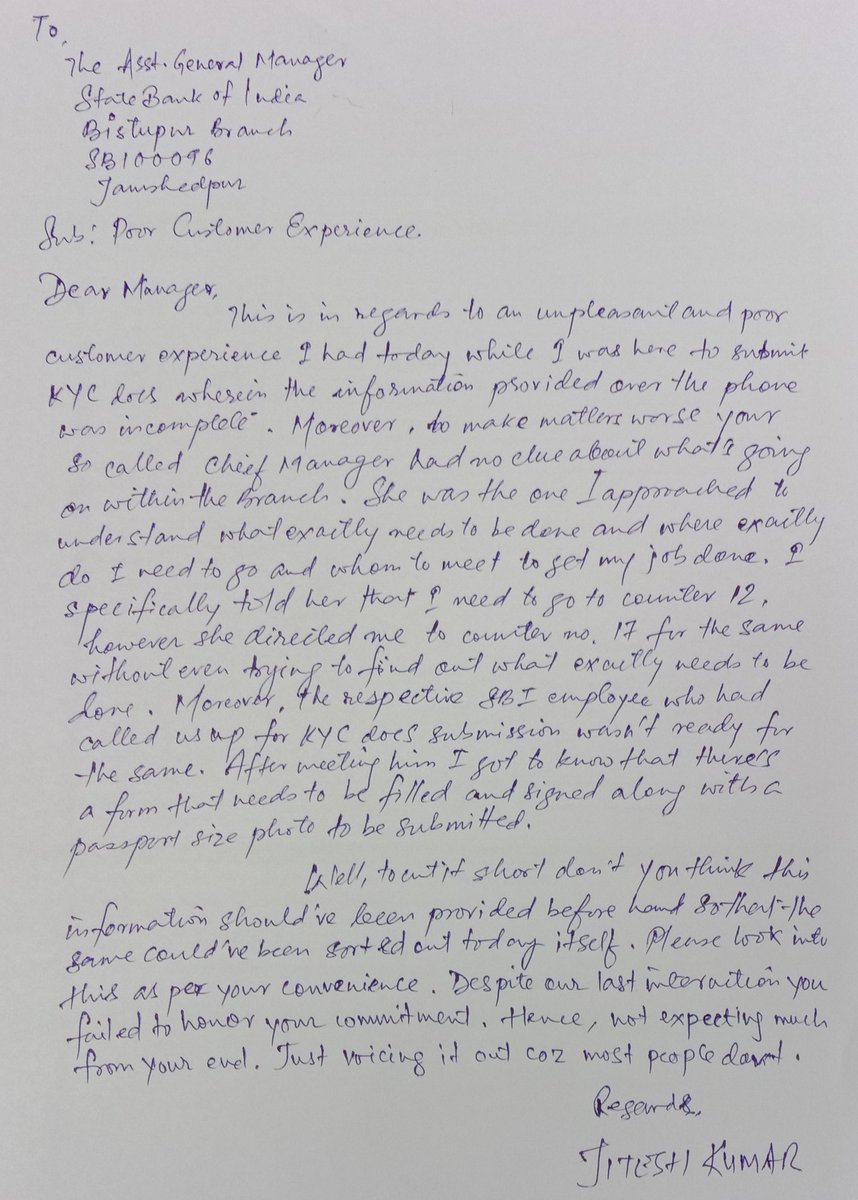 To,
The Asst. General Manager
State Bank of India
Bistupur Branch
SBI00096
Jamshedpur
Sub: Poor Customer Experience.
Dear Manager,
This is in regards to an unpleasant and poor
customer experience I had today while I was here to submit
KYC docs wherein the information provided over the phone
was incomplete. Moreover, to make matters worse your
so called Chief Manager had no clue about what's going
on within the Branch. She was the one I approached to
understand what exactly needs to be done and where exactly
do I need to go and whom to meet to get my job done. I
specifically told her that I need to go to counter 12,
however she directed me to counter no. 17 for the same
without even trying to find out what exactly needs to be
done. Moreover, the respective SBI employee who had
called us up for KYC docs submission wasn't ready for
the same. After meeting him I got to know that there's
a form that needs to be filled and signed along with a
passport size photo to be submitted.
Well, to cut it short don't you think this
information should've been provided before hand so that the
same could've been sorted out today itself. Please look into
this as per your convenience. Despite our last interaction you
failed to honor your commitment. Hence, not expecting much
from your end. Just voicing it out coz most people don't.
Regards,
JITESH KUMAR